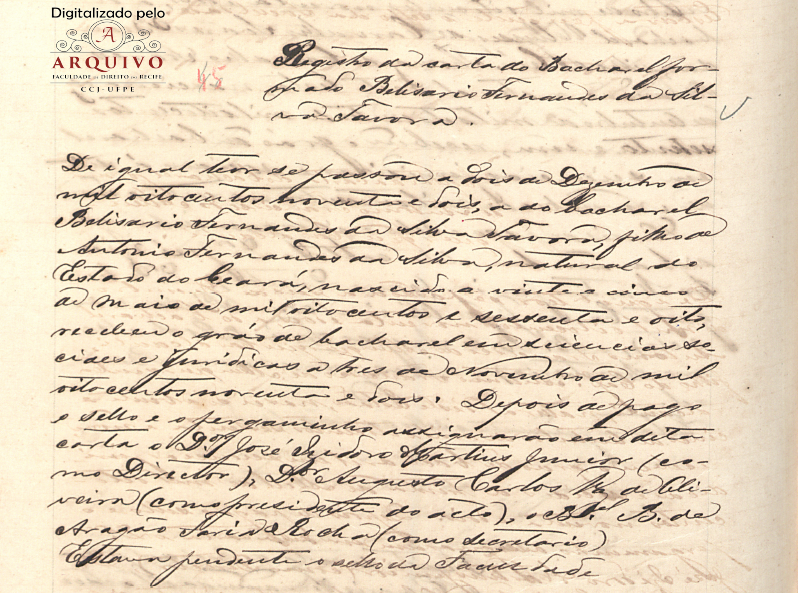 Digitalizado pelo
A
ARQUIVO
FACULDADE DE DIREITO DO RECIFE
CCJ-UFPE
Registro da carta do Bacharel for-
mado Belisario Fernandes da Sil-
va Tavora.
De igual teor se passou a dois de Dezembro de
mil oitocentos noventa e dois, a do bacharel
Belisario Fernandes da Silva Tavora, filho de
Antonio Fernandes da Silva, natural do
Estado do Ceará, nascido a vinte e cinco
de maio de mil oitocentos e sessenta e oito,
recebeu o gráo de bacharel em sciencias so-
ciaes e juridicas a tres de Novembro de mil
oitocentos noventa e dois. Depois de pago
o sello e o pergaminho assignarão em dita
carta o Dor José Izidoro Martins Junior (co-
mo Director), Dor Augusto Carlos de Oli-
veira (como presidente do acto), o Bel B. de
Aragão Faria Rocha (como secretario)
Estava pendente o sello da Faculdade